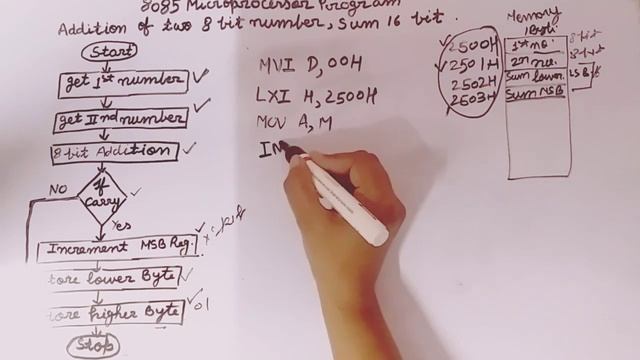 8085 Microprocessor Program
Addition of two 8 bit number, Sum 16 bit.
Start
get Ist number
get IInd number
8 bit Addition
If
carry
NO
Yes
Increment MSB Reg.
tore lower Byte
tore higher Byte
01
Stop
MVI D, 00H
LXI H, 2500H
MOV A, M
IN
Memory
2500H 1st no. 8-bit
2501H 2n no. 8-bit
2502H Sum lower.
2503H Sum MSB